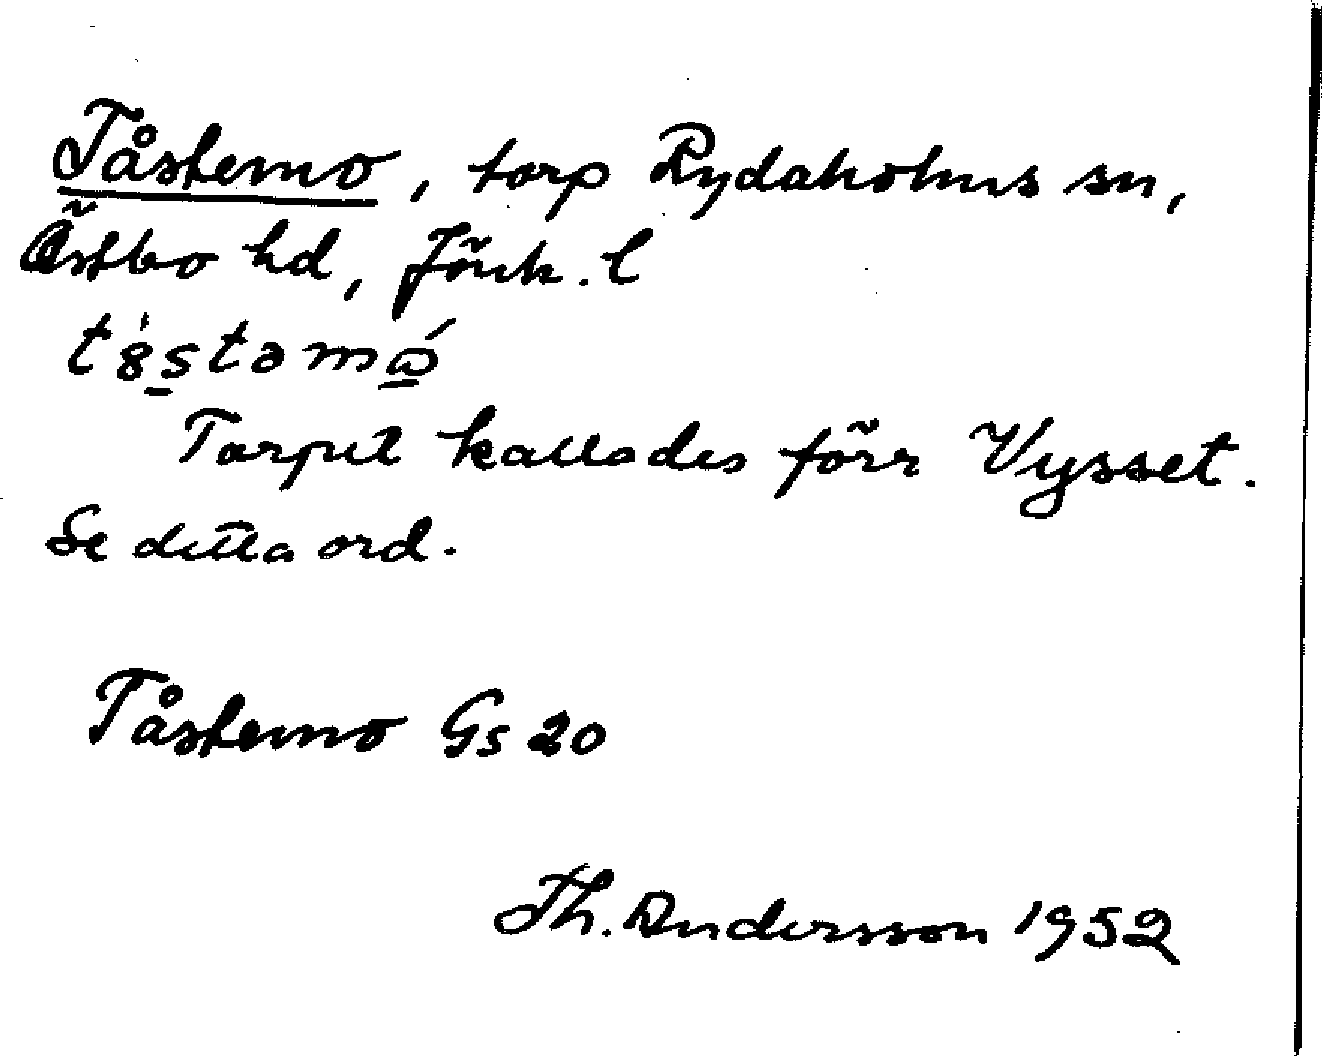 Tåstemo, torp Rydaholms sn,
Östbo hd, Jönk. l
Torpet kallades förr Vysset.
Se detta ord.
Tåstemo Gs 20
Th. Andersson 1952